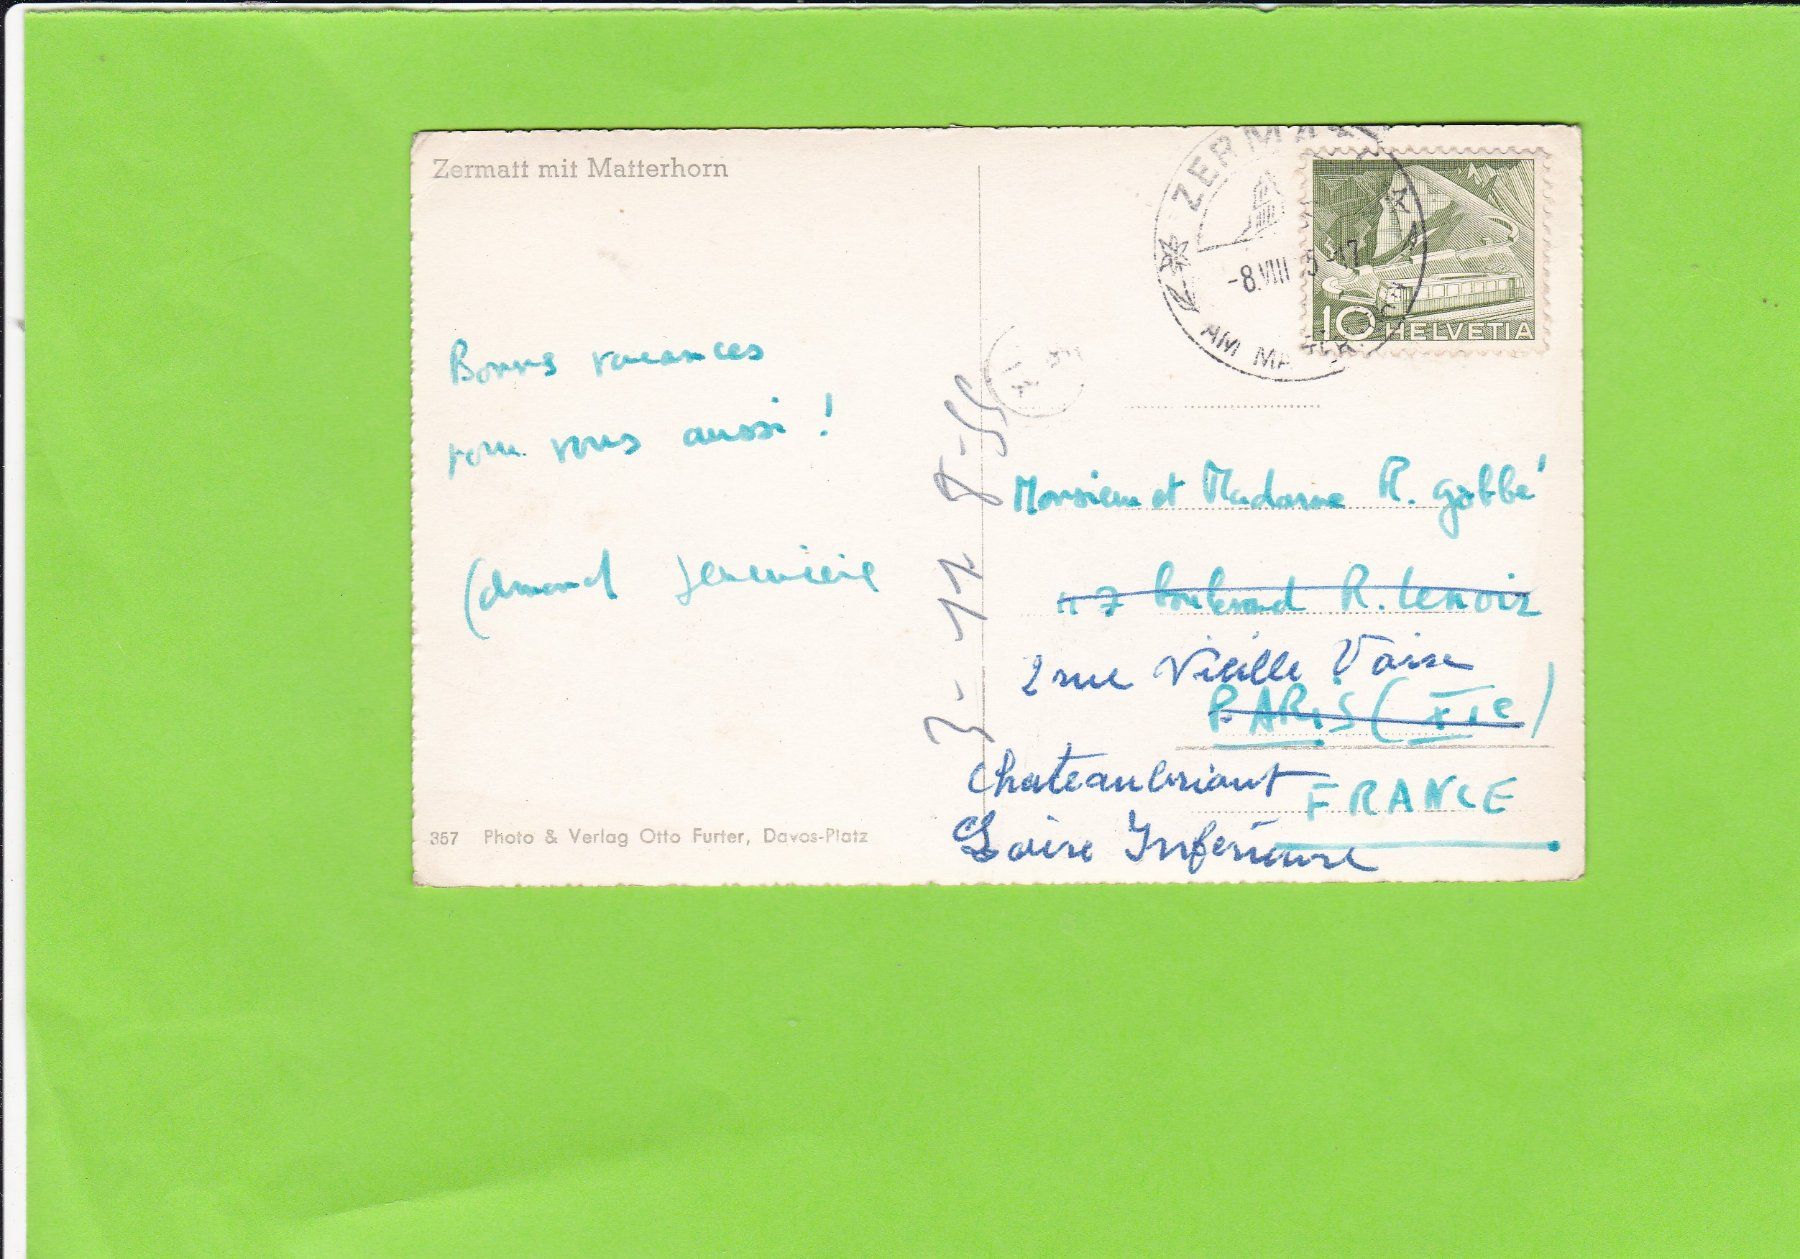 Zermatt mit Matterhorn
ZERMATT
-8.VIII 5 -17
AM MATTERHORN
10 HELVETIA
Bonnes vacances
pour vous aussi !
Edmond Geneviève
357 Photo & Verlag Otto Furter, Davos-Platz
3 - 11 8-55
Monsieur et Madame R. Gobbé
117 boulevard R. Lenoir
2 rue Vieille Voise
PARIS (XIe)
Chateaubriant
FRANCE
Loire Inférieure